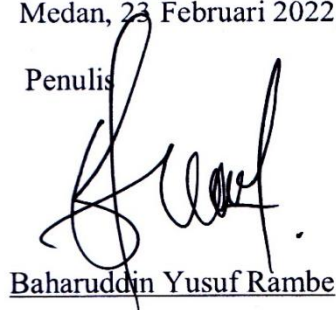 Medan, 23 Februari 2022
Penulis
Baharuddin Yusuf Rambe